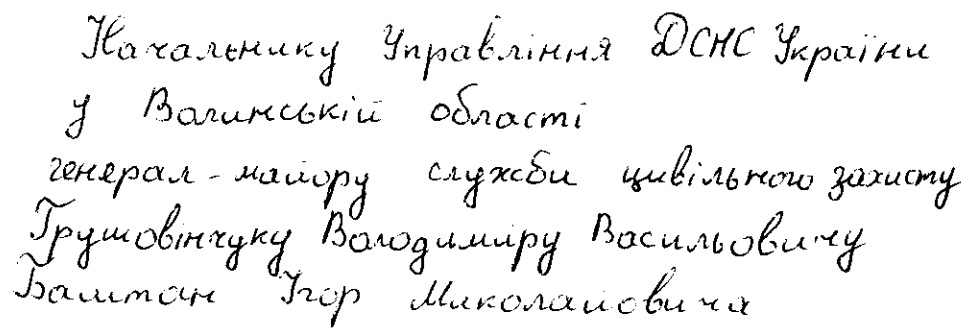 Начальнику Управління ДСНС України
у Волинській області
генерал-майору служби цивільного захисту
Грушовінчуку Володимиру Васильовичу
Баштан Ігор Миколайовича